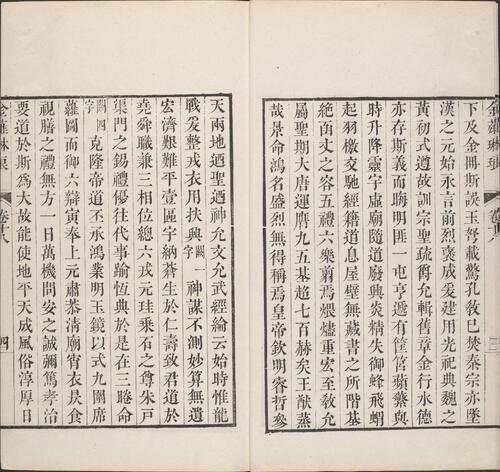 金薤琳琅
卷十八
三
下及金冊斯誤玉弩載驚孔敎已焚秦宗亦墜
漢之元始永言前烈襃成爰建用光祀典魏之
黃初式遵故訓宗聖疏爵允輯舊章金行水德
亦存斯義而晦明匪一屯亨遞有筐筥蘋蘩與
時升降靈宇虛廟隨道廢興炎精失御蜂飛蝟
起羽檄交馳經籍道息屋壁無藏書之所階基
絶函丈之容五禮六樂翦焉煨燼重宏至敎允
屬聖期大唐運膺九五基超七百赫矣王猷蒸
哉景命鴻名盛烈無得稱焉皇帝欽明睿哲參
天兩地迺聖迺神允文允武經綸云始時惟龍
戰爰整戎衣用扶興闕一字神謀不測妙算無遺
宏濟艱難平壹區宇納蒼生於仁壽致君道於
堯舜職兼三相位總六戎元珪乘石之尊朱戸
渠門之錫禮優往代事踰恆典於是在三睠命
闕四字克隆帝道丕承鴻業明玉鏡以式九圍席
蘿圖而御六辯寅奉上元肅恭淸廟宵衣昃食
視膳之禮無方一日萬機問安之誠彌篤孝治
要道於斯爲大故能使地平天成風俗淳厚日
金薤琳琅
卷十八
四